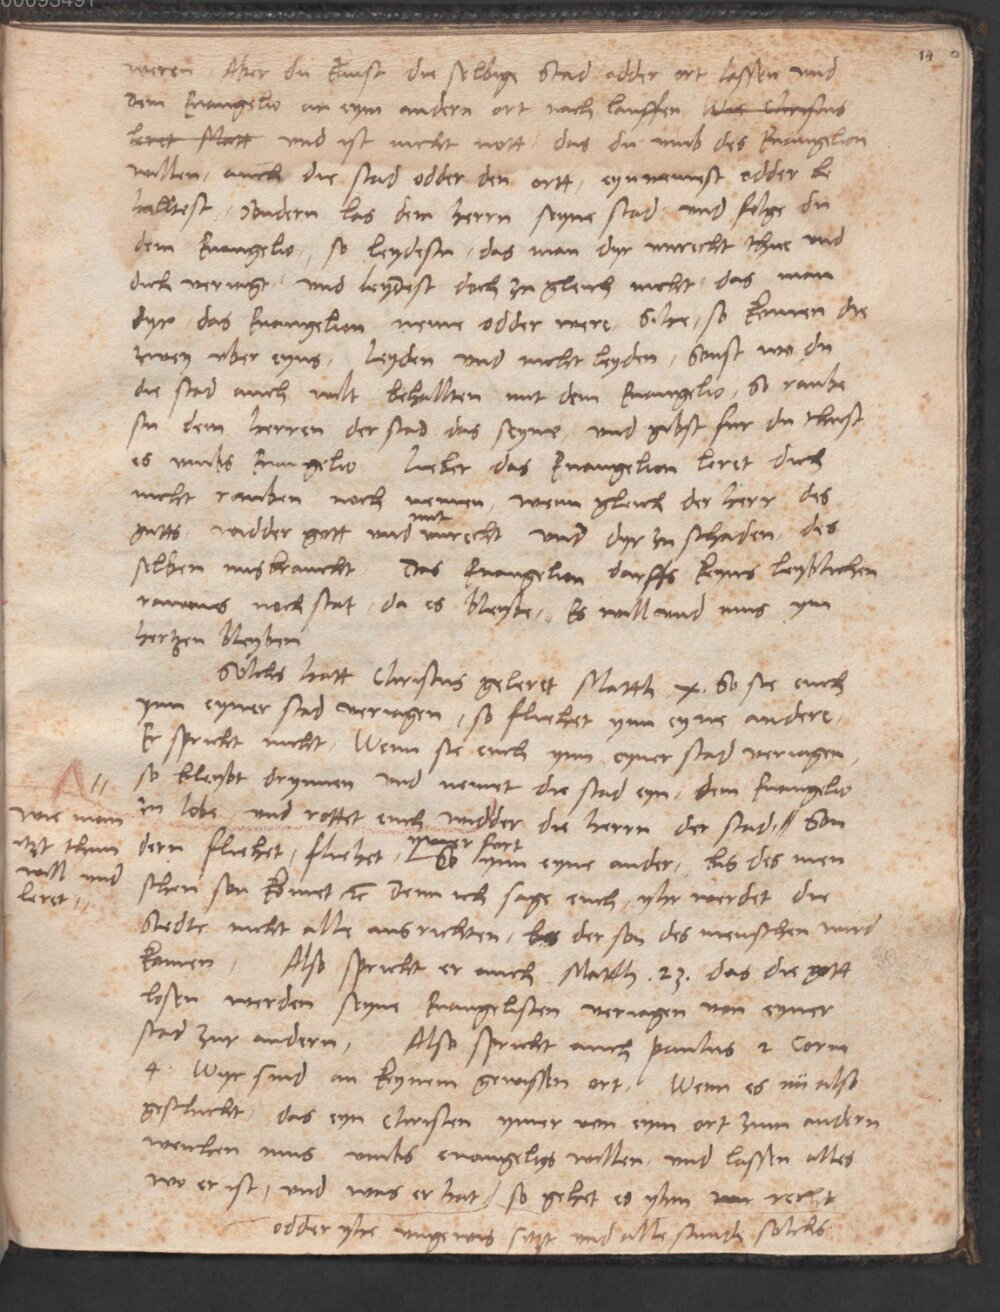 00093491
14
weren Aber du kanst die selbige stad odder ort lassen und
dem Euangelio an eym andern ort nach lauffen Wie Christus
leret Matt und ist nicht nott, das du umb des Euangelion
willen, auch die stad odder den ortt, eynnemest odder be
halltest, Sondern las dem herrn seyne stad und folge du
dem Euangelio, so leydestu, das man dyr unrecht thue und
dich veriagt, und leydest doch zu gleich nicht, das man
dyr das Euangelion neme odder were, Sihe, so komen die
zwey uber eyns, Leyden und nicht leyden, Sonst wo du
die stad auch wilt behallten mit dem Euangelio, So raube
stu dem herren der stad das seyne, und gibst fur du thust
es umbs Euangelio Lieber das Euangelion leret dich
nicht rauben noch nemen, wenn gleich der herr des
mit
gutts, widder gott und unrecht und dyr zu schaden des
selben misbraucht Das Euangelion darffs keyns leyblichen
raumes noch stat, da es bleybe, Es will und mus ym
hertzen bleyben
Solchs hatt Christus geleret Matth x. So sie euch
ynn eyner stad veriagen, so fliehet ynn eyne andere,
Er spricht nicht, Wenn sie euch ynn eyner stad veriagen,
so bleybt drynnen und nemet die stad eyn, dem Euangelio
zu lobe und rottet euch widder die herrn der stad, Son
wie man
itzt thun
will und
leret
ymer fort
dern fliehet, fliehet, So ynn eyne ander, bis des men
schen son komet &c Denn ich sage euch, yhr werdet die
stedte nicht alle ausrichten, bis der son des menschen wird
komen, Also spricht er auch Matth .23. das die gott
losen werden seyne Euangelisten veriagen von eyner
stad zur andern, Also spricht auch paulus 2 Corin
4 Wyr sind an keynem gewissen ort, Wenn es nu also
geschicht, das eyn Christen ymer von eym ort zum andern
weichen mus umbs euangelios willen, und lassen alles
wo er ist, und was er hat, so gehet es yhm recht
odder yhe ungewis sitzt und alle stunde solchs